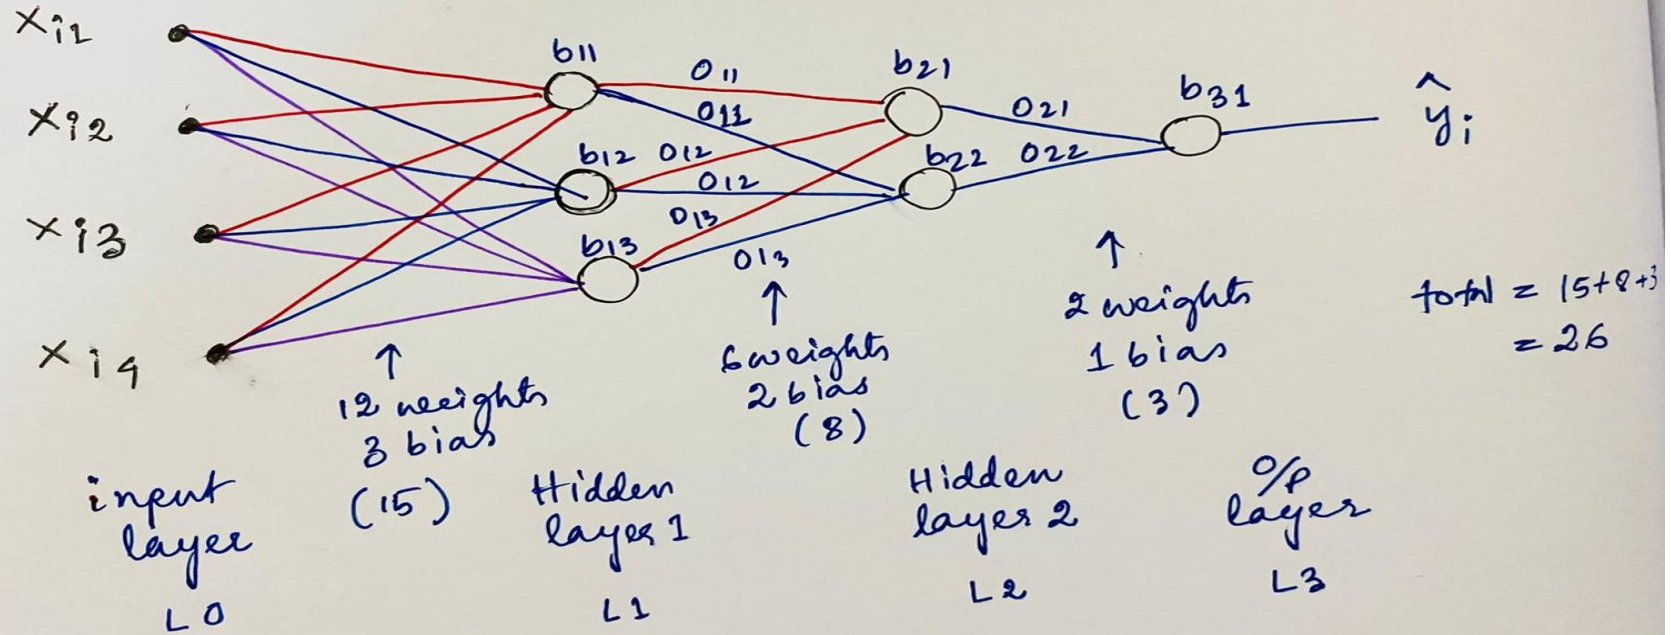 xi1
xi2
xi3
xi4
b11
b12
b13
O11
O11
O12
O12
O13
O13
b21
b22
O21
O22
b31
ŷi
↑
12 weights
3 bias
(15)
↑
6 weights
2 bias
(8)
↑
2 weights
1 bias
(3)
total = 15+8+3
= 26
input
layer
L0
Hidden
layer 1
L1
Hidden
layer 2
L2
O/P
layer
L3